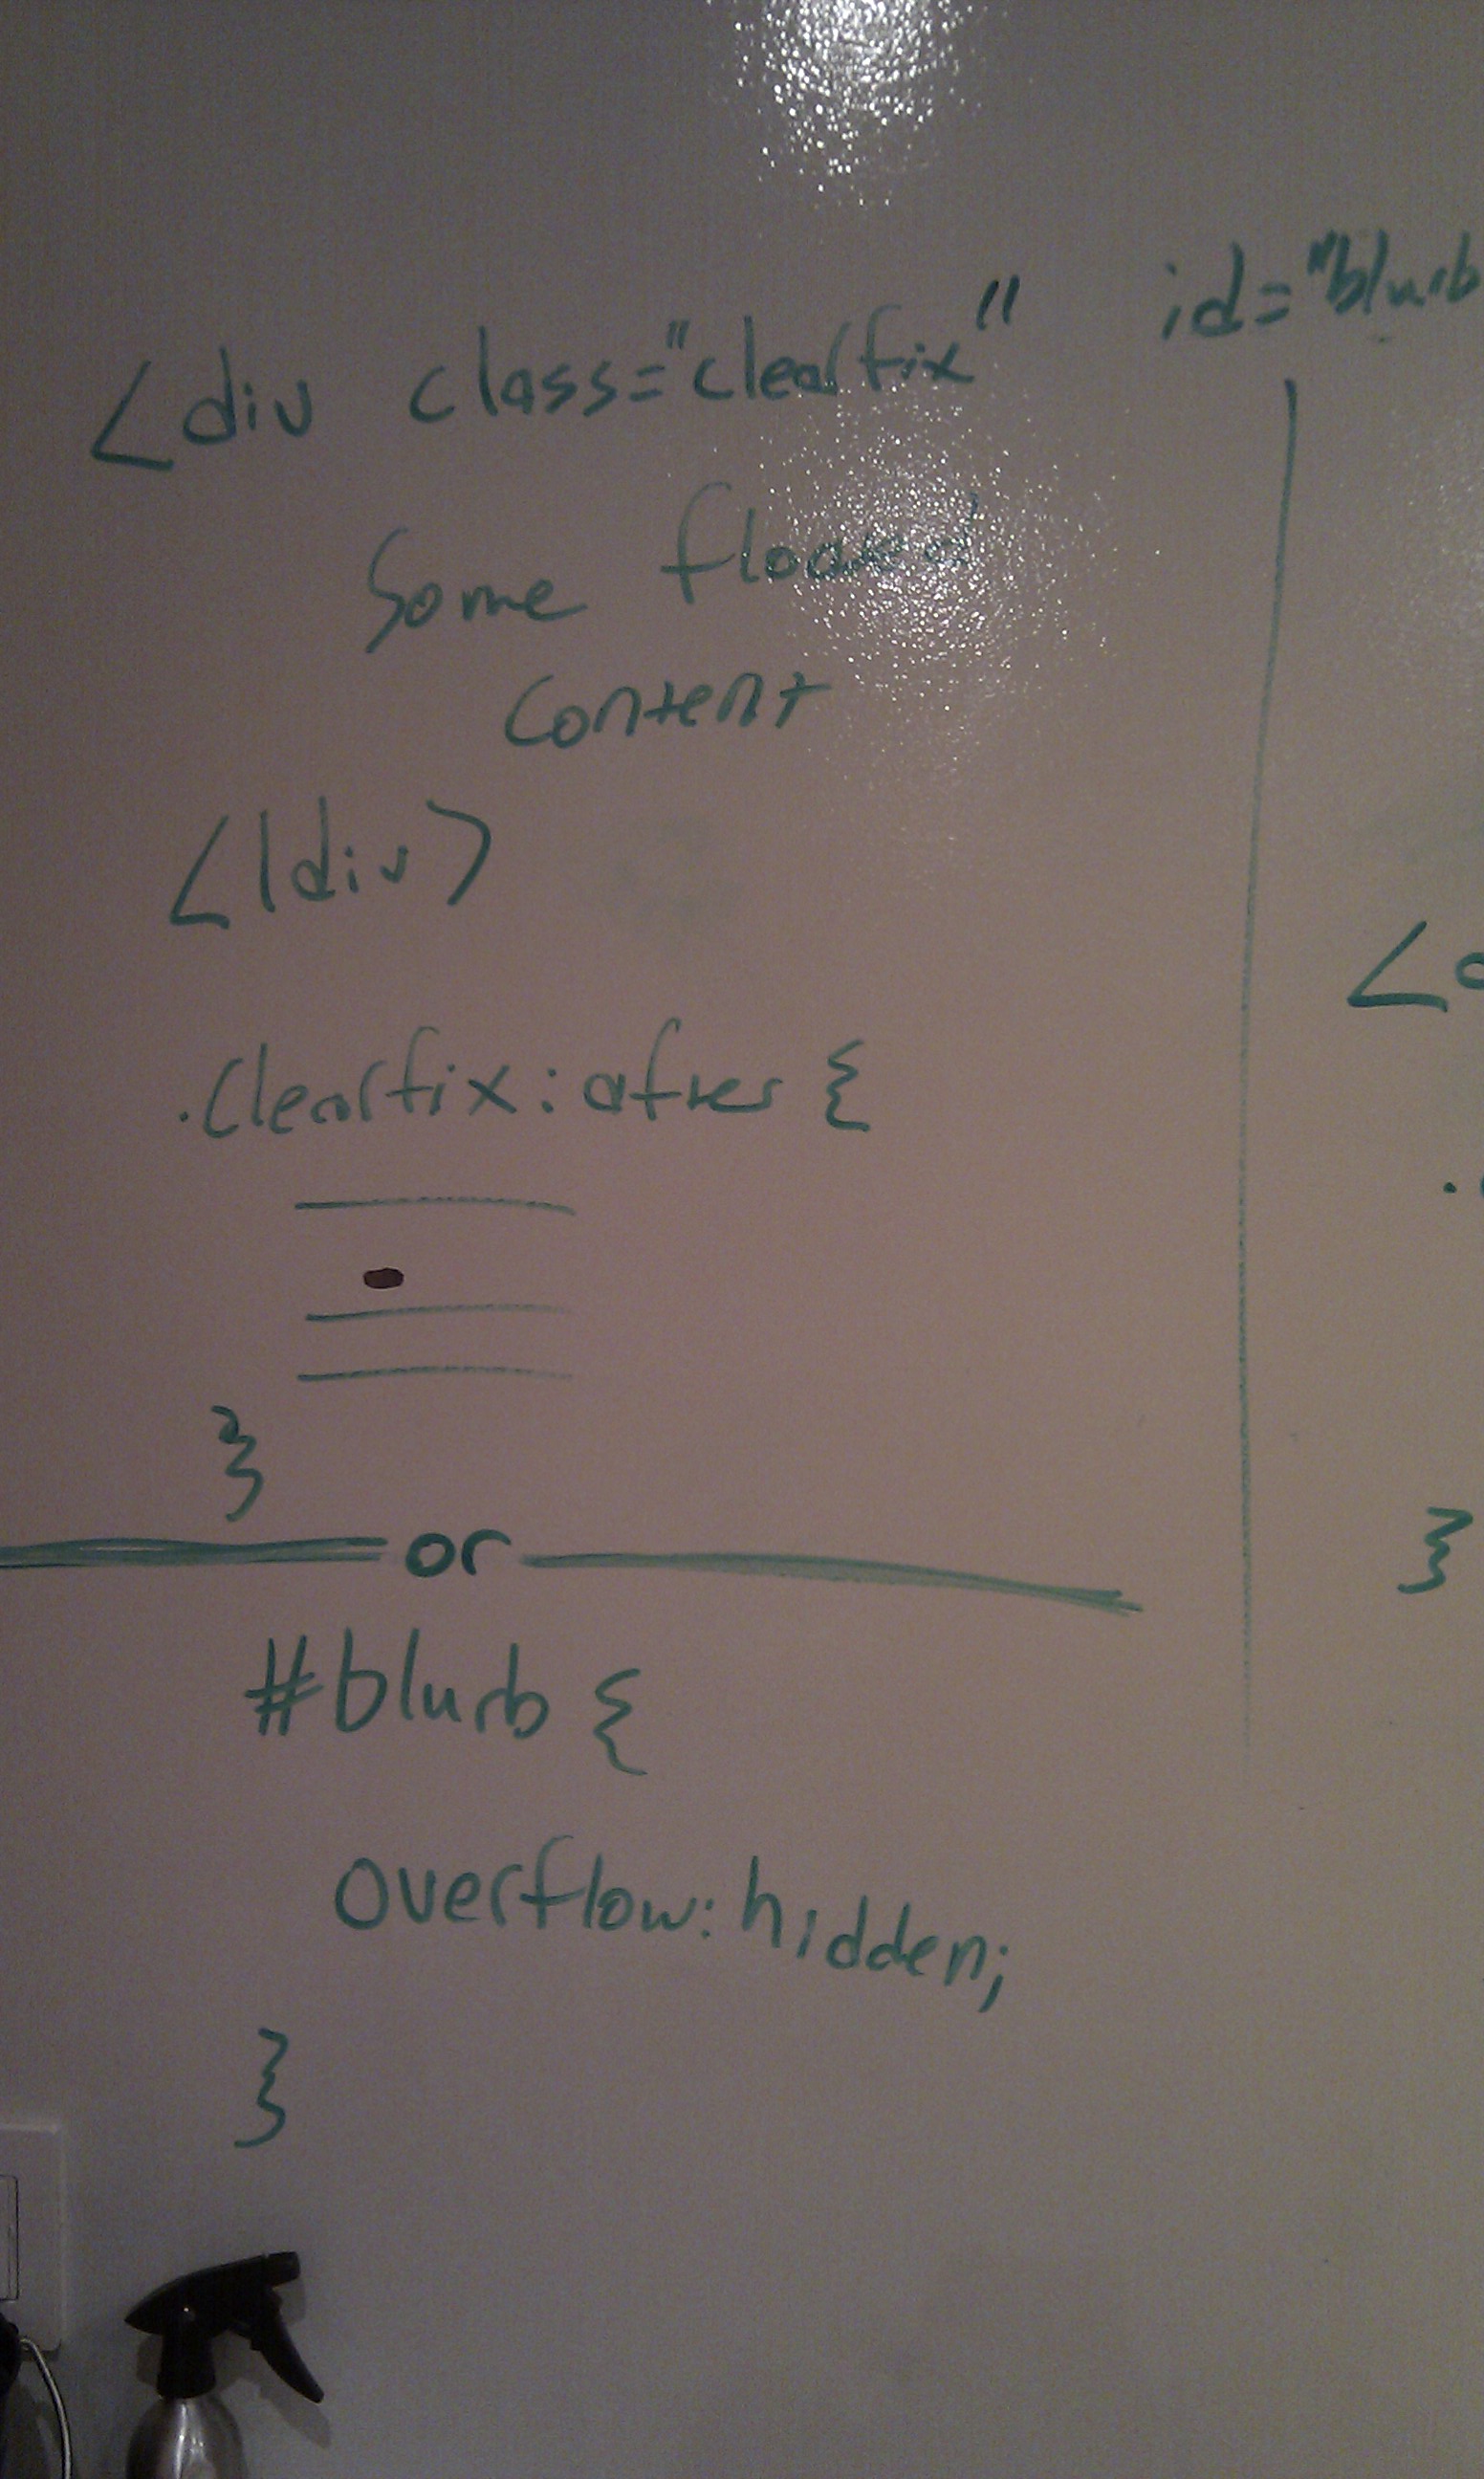 <div class="clearfix" id="blurb
Some floated
content
</div>
.clearfix:after {
}
or
#blurb {
overflow: hidden;
}
<
.
}